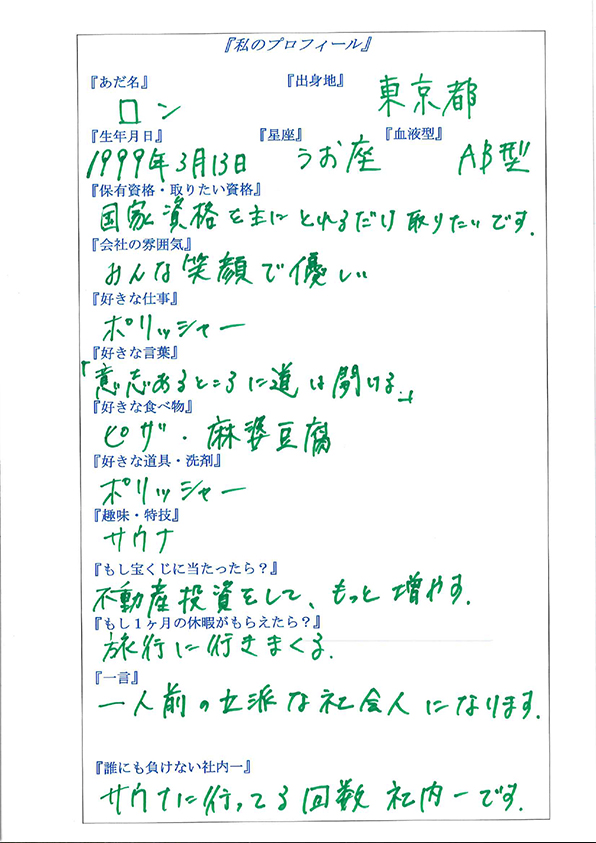 『私のプロフィール』
『あだ名』 『出身地』
ロン 東京都
『生年月日』 『星座』 『血液型』
1999年3月13日 うお座 AB型
『保有資格・取りたい資格』
国家資格を主にとれるだけ取りたいです.
『会社の雰囲気』
みんな笑顔で優しい
『好きな仕事』
ポリッシャー
『好きな言葉』
「意志あるところに道は開ける」
『好きな食べ物』
ピザ・麻婆豆腐
『好きな道具・洗剤』
ポリッシャー
『趣味・特技』
サウナ
『もし宝くじに当たったら?』
不動産投資をして、もっと増やす.
『もし1ヶ月の休暇がもらえたら?』
旅行に行きまくる.
『一言』
一人前の立派な社会人になります.
『誰にも負けない社内一』
サウナに行ってる回数 社内一です.